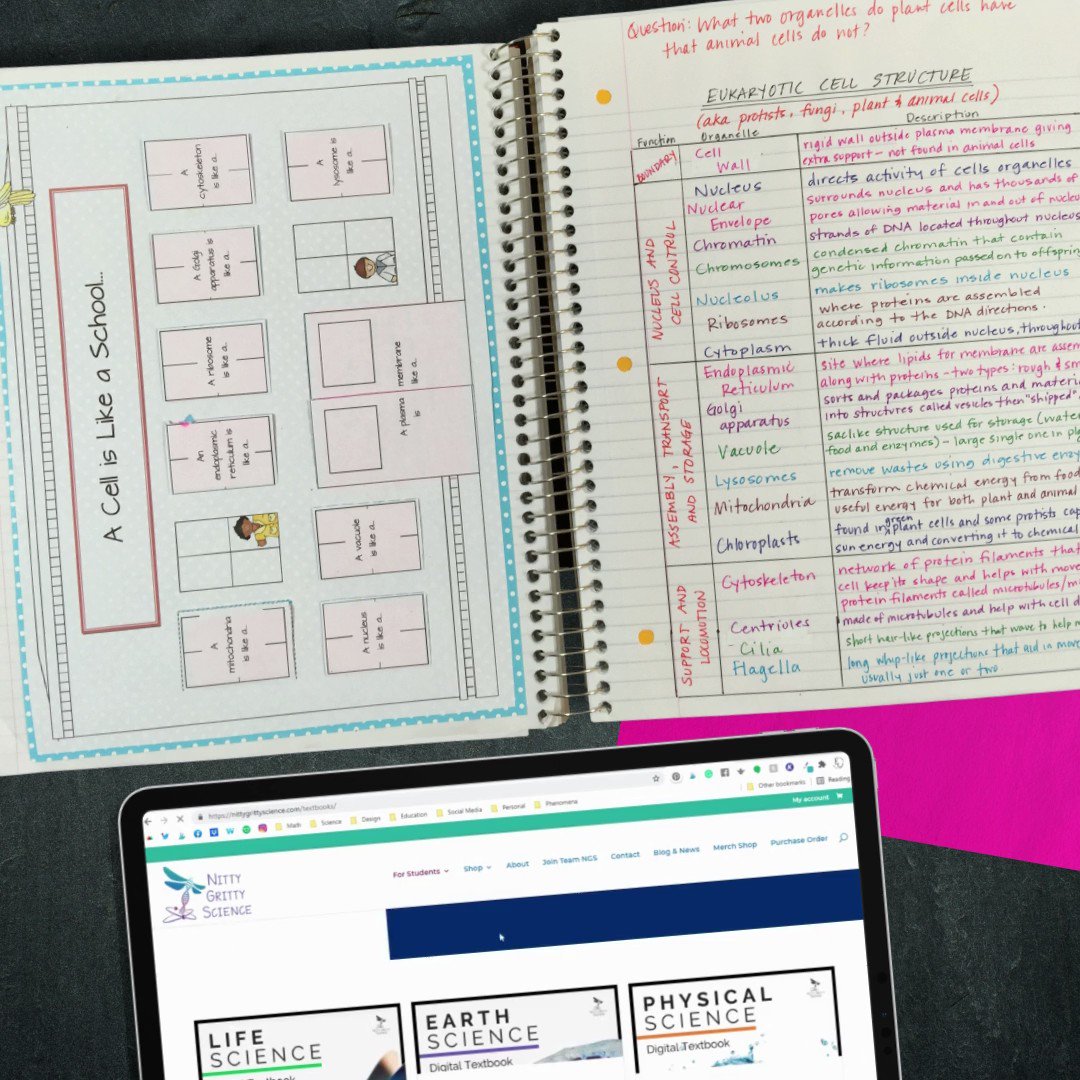 A Cell is Like a School...
A
mitochondria
is like a..
An
endoplasmic
reticulum is
like a..
A ribosome
is like a..
A Golgi
apparatus is
like a..
A
cytoskeleton
is like a..
A nucleus
is like a..
A vacuole
is like a..
A plasma membrane
is like a..
A
lysosome is
like a..
Question: What two organelles do plant cells have
that animal cells do not?
EUKARYOTIC CELL STRUCTURE
(aka protists, fungi, plant & animal cells)
Function Organelle Description
BOUNDARY
Cell
Wall
rigid wall outside plasma membrane giving
extra support - not found in animal cells
NUCLEUS AND
CELL CONTROL
Nucleus
directs activity of cells organelles
Nuclear
Envelope
surrounds nucleus and has thousands of
pores allowing material in and out of
Chromatin
strands of DNA located throughout
Chromosomes
condensed chromatin that contain
genetic information passed on to
Nucleolus
makes ribosomes inside nucleus
Ribosomes
where proteins are assembled
according to the DNA directions.
Cytoplasm
thick fluid outside nucleus,
ASSEMBLY, TRANSPORT
AND STORAGE
Endoplasmic
Reticulum
site where lipids for membrane are
along with proteins - two types: rough &
Golgi
apparatus
sorts and packages proteins and
into structures called vesicles then "shipped"
Vacuole
saclike structure used for storage
food and enzymes) - large single one in
Lysosomes
remove wastes using digestive
Mitochondria
transform chemical energy from food
useful energy for both plant and animal
Chloroplasts
found in green plant cells and some protists
sun energy and converting it to chemical
SUPPORT AND
LOCOMOTION
Cytoskeleton
network of protein filaments
cell keep its shape and helps with
protein filaments called
Centrioles
made of microtubules and help with cell
Cilia
short hair-like projections that wave to help
Flagella
long whip-like projections that aid in
usually just one or two.
https://nittygrittyscience.com/textbooks/
Math Science Design Education Social Media Personal Phenomena Other bookmarks Reading
My account
NITTY
GRITTY
SCIENCE
For Students Shop About Join Team NGS Contact Blog & News Merch Shop Purchase Order
LIFE
SCIENCE
Digital Textbook
EARTH
SCIENCE
Digital Textbook
PHYSICAL
SCIENCE
Digital Textbook